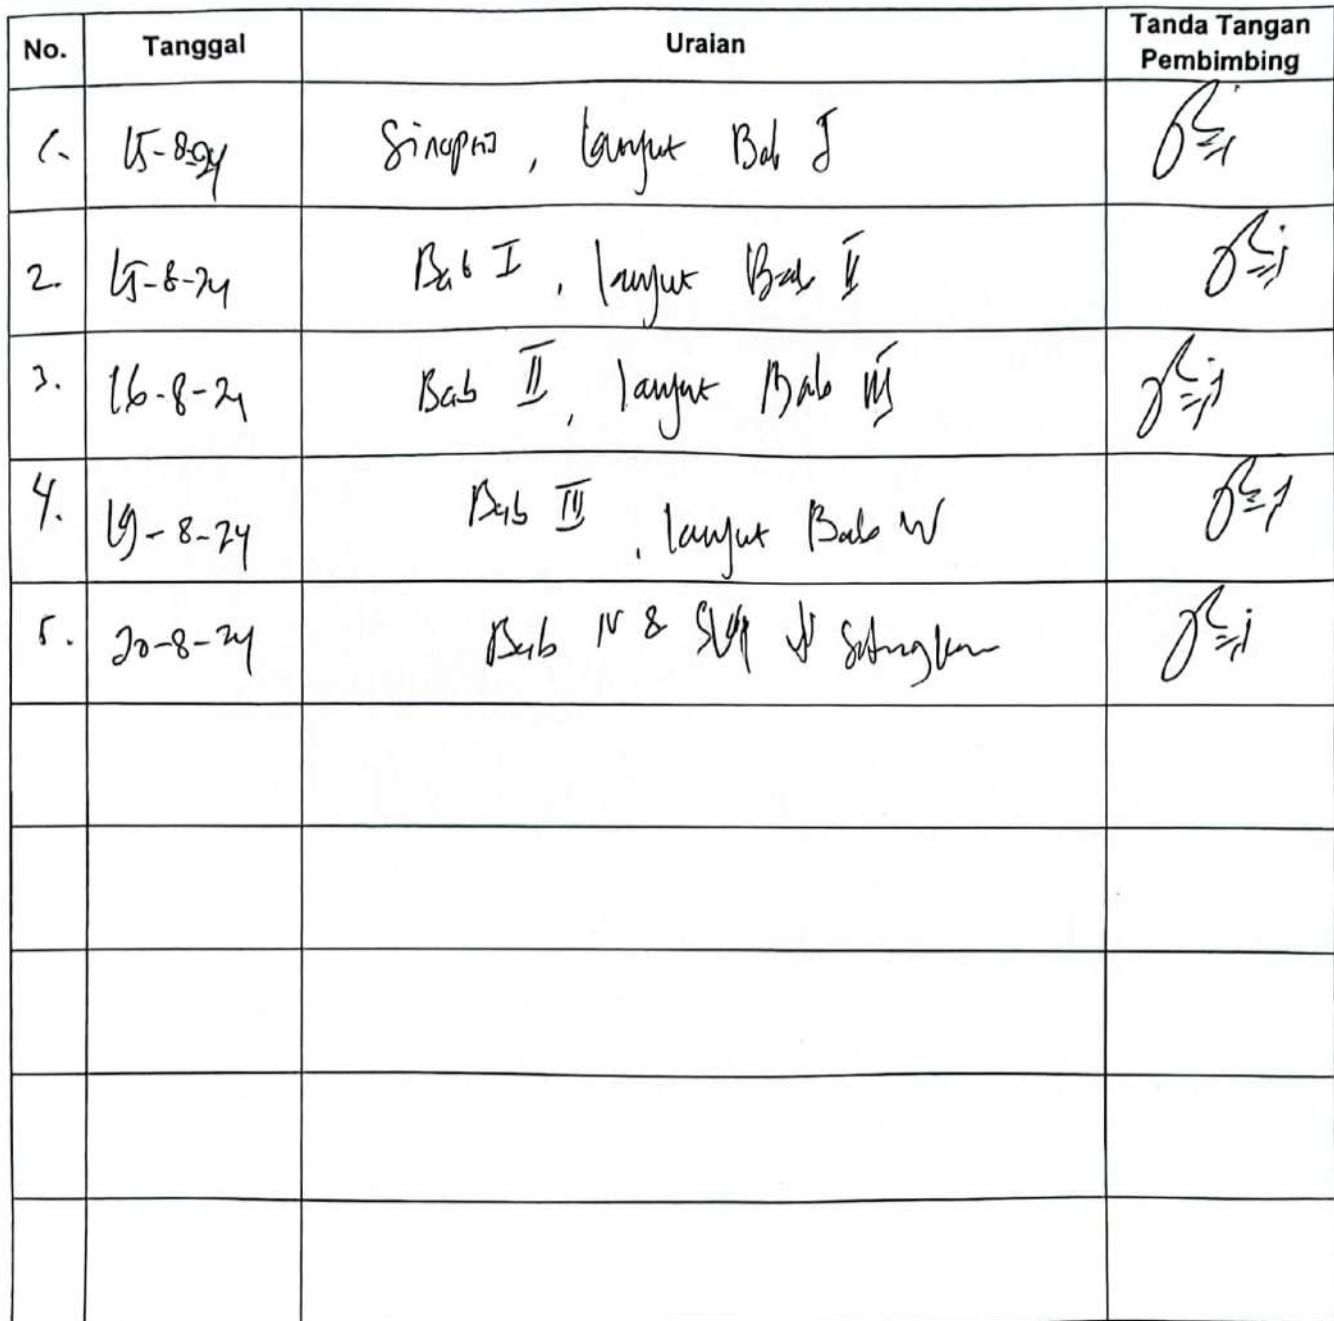 No. Tanggal Uraian Tanda Tangan Pembimbing
1. 15-8-24 Sinopsis, lanjut Bab I
2. 15-8-24 Bab I, lanjut Bab II
3. 16-8-24 Bab II, lanjut Bab III
4. 19-8-24 Bab III, lanjut Bab IV
5. 20-8-24 Bab IV &